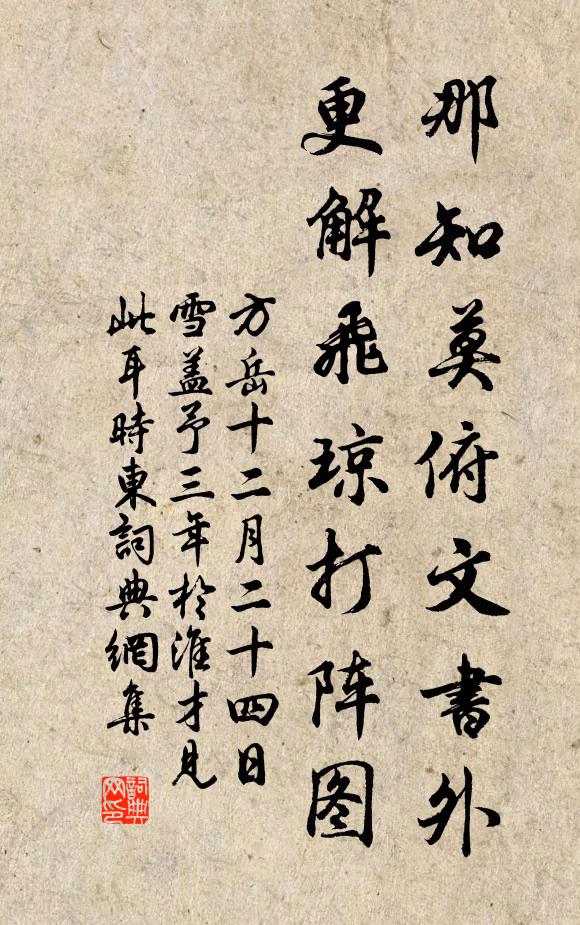 那知莫俯文書外
更解飛琼打阵图
方岳十二月二十四日
雪盖予三年於淮才見
此耳時東詞典網集
詞典网印